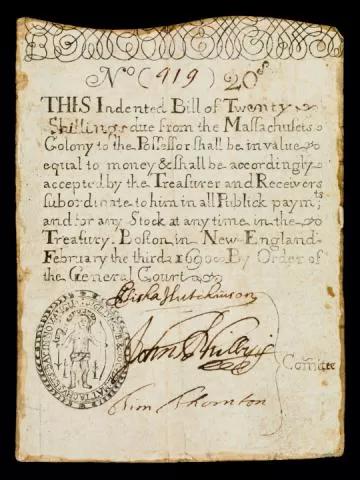 No (919) 20s
THIS Indented Bill of Twenty
Shillings due from the Massachusets
Colony to the Possessor shall be in value
equal to money & shall be accordingly
accepted by the Treasurer and Receivers
subordinate to him in all Publick paymts
and for any Stock at any time in the
Treasury. Boston in New-England
February the third 1690 By Order of
the General Court
Elisha Hutchinson
John Phillips
Comittee
Tim Thornton